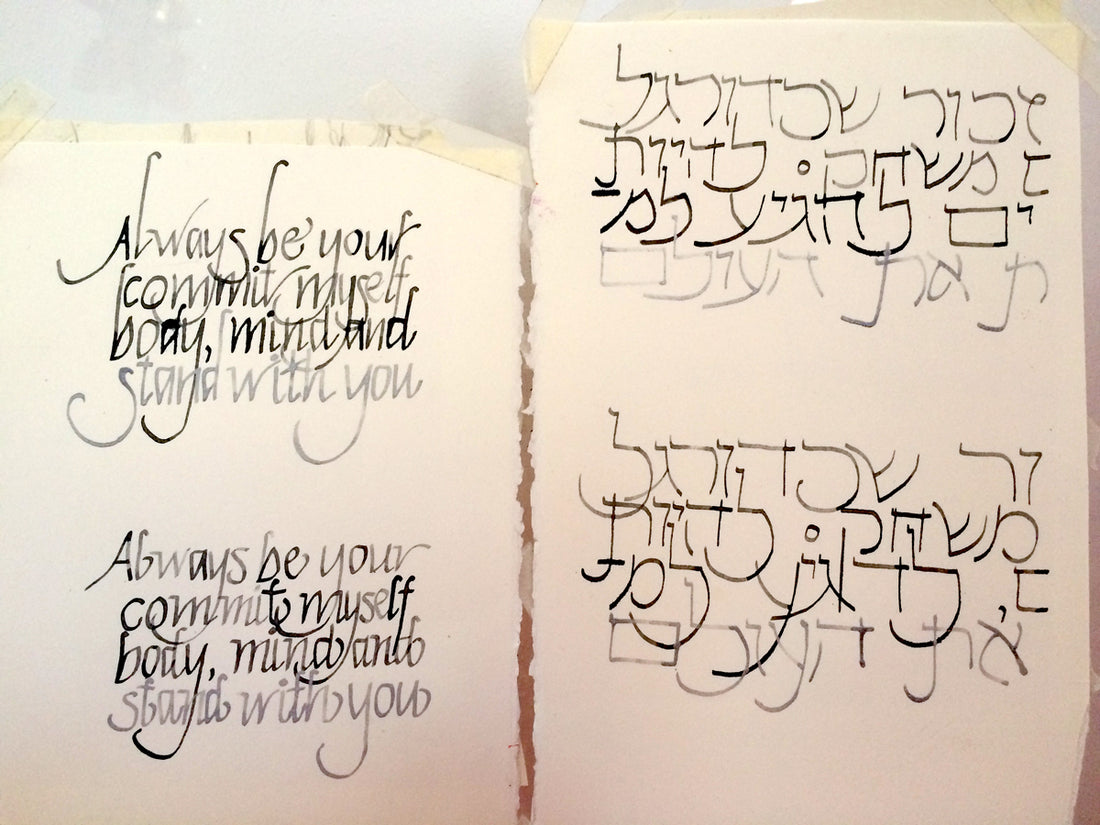 Always be your
commit myself
body, mind and
stand with you
Always be your
commit myself
body, mind and
stand with you
זכור שכדורגל
משחק להיות
ים להגיע למ
ת את העולם
שכדורגל
משחק להיות
למ
את העולם